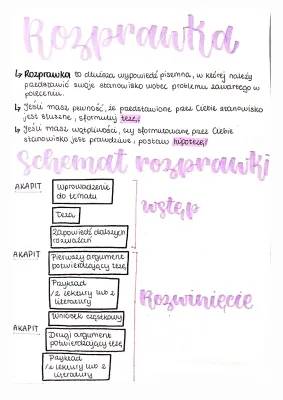 Rozprawka
↳ Rozprawka to dłuższa wypowiedź pisemna, w której należy
przedstawić swoje stanowisko wobec problemu zawartego w
poleceniu.
↳ Jeśli masz pewność, że przedstawione przez Ciebie stanowisko
jest słuszne, sformułuj tezę!
↳ Jeśli masz wątpliwości, czy sformułowane przez Ciebie
stanowisko jest prawdziwe, postaw hipotezę!
Schemat rozprawki
AKAPIT
Wprowadzenie
do tematu
Teza
Zapowiedź dalszych
rozważań
wstęp
AKAPIT
Pierwszy argument
potwierdzający tezę
Przykład
/z lektury lub z
literatury
Wniosek cząstkowy
Rozwinięcie
AKAPIT
Drugi argument
potwierdzający tezę
Przykład
/z lektury lub z
literatury